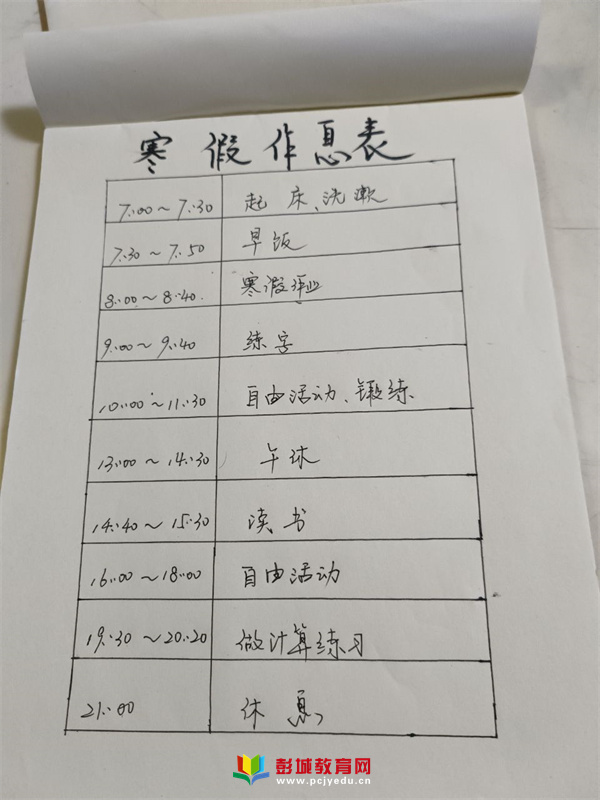 寒假作息表
7:00~7:30 起床、洗漱
7:30~7:50 早饭
8:00~8:40. 寒假作业
9:00~9:40 练字
10:00~11:30 自由活动、锻练
13:00~14:30 午休
14:40~15:30 读书
16:00~18:00 自由活动
19:30~20:20 做计算练习
21:00 休息
彭城教育网
www.pcjyedu.cn